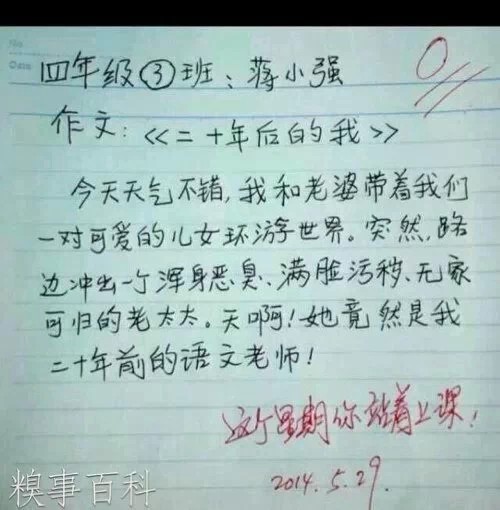 No.
Date
四年级③班：蒋小强
0
作文：《二十年后的我》
今天天气不错，我和老婆带着我们
一对可爱的儿女环游世界。突然，路
边冲出一个浑身恶臭、满脸污秽、无家
可归的老太太。天啊！她竟然是我
二十年前的语文老师！
这个星期你站着上课！
2014.5.29.
糗事百科